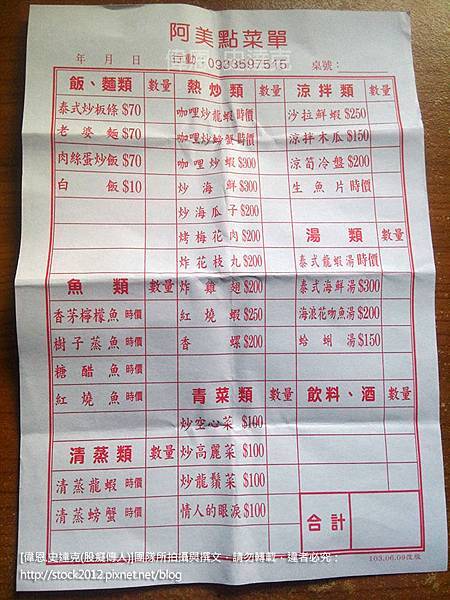 阿美點菜單
年 月 日 行動 0933597515 桌號：
飯、麵類 數量 熱炒類 數量 涼拌類 數量
泰式炒板條 $70 咖哩炒龍蝦 時價 沙拉鮮蝦 $250
老婆麵 $70 咖哩炒螃蟹 時價 涼拌木瓜 $150
肉絲蛋炒飯 $70 咖哩炒蝦 $300 涼筍冷盤 $200
白飯 $10 炒海鮮 $300 生魚片 時價
炒海瓜子 $200
烤梅花肉 $200 湯類 數量
炸花枝丸 $200 泰式龍蝦湯 時價
魚類 數量 炸雞翅 $200 泰式海鮮湯 $300
香茅檸檬魚 時價 紅燒蝦 $250 海浪花吻魚湯 $200
樹子蒸魚 時價 香螺 $200 蛤蜊湯 $150
糖醋魚 時價
紅燒魚 時價 青菜類 數量 飲料、酒 數量
炒空心菜 $100
清蒸類 數量 炒高麗菜 $100
清蒸龍蝦 時價 炒龍鬚菜 $100
清蒸螃蟹 時價 情人的眼淚 $100 合計
103.06.09改版
[偉恩.史達克(股癡傳人)]團隊所拍攝與撰文，請勿轉載，違者必究：
http://stock2012.pixnet.net/blog